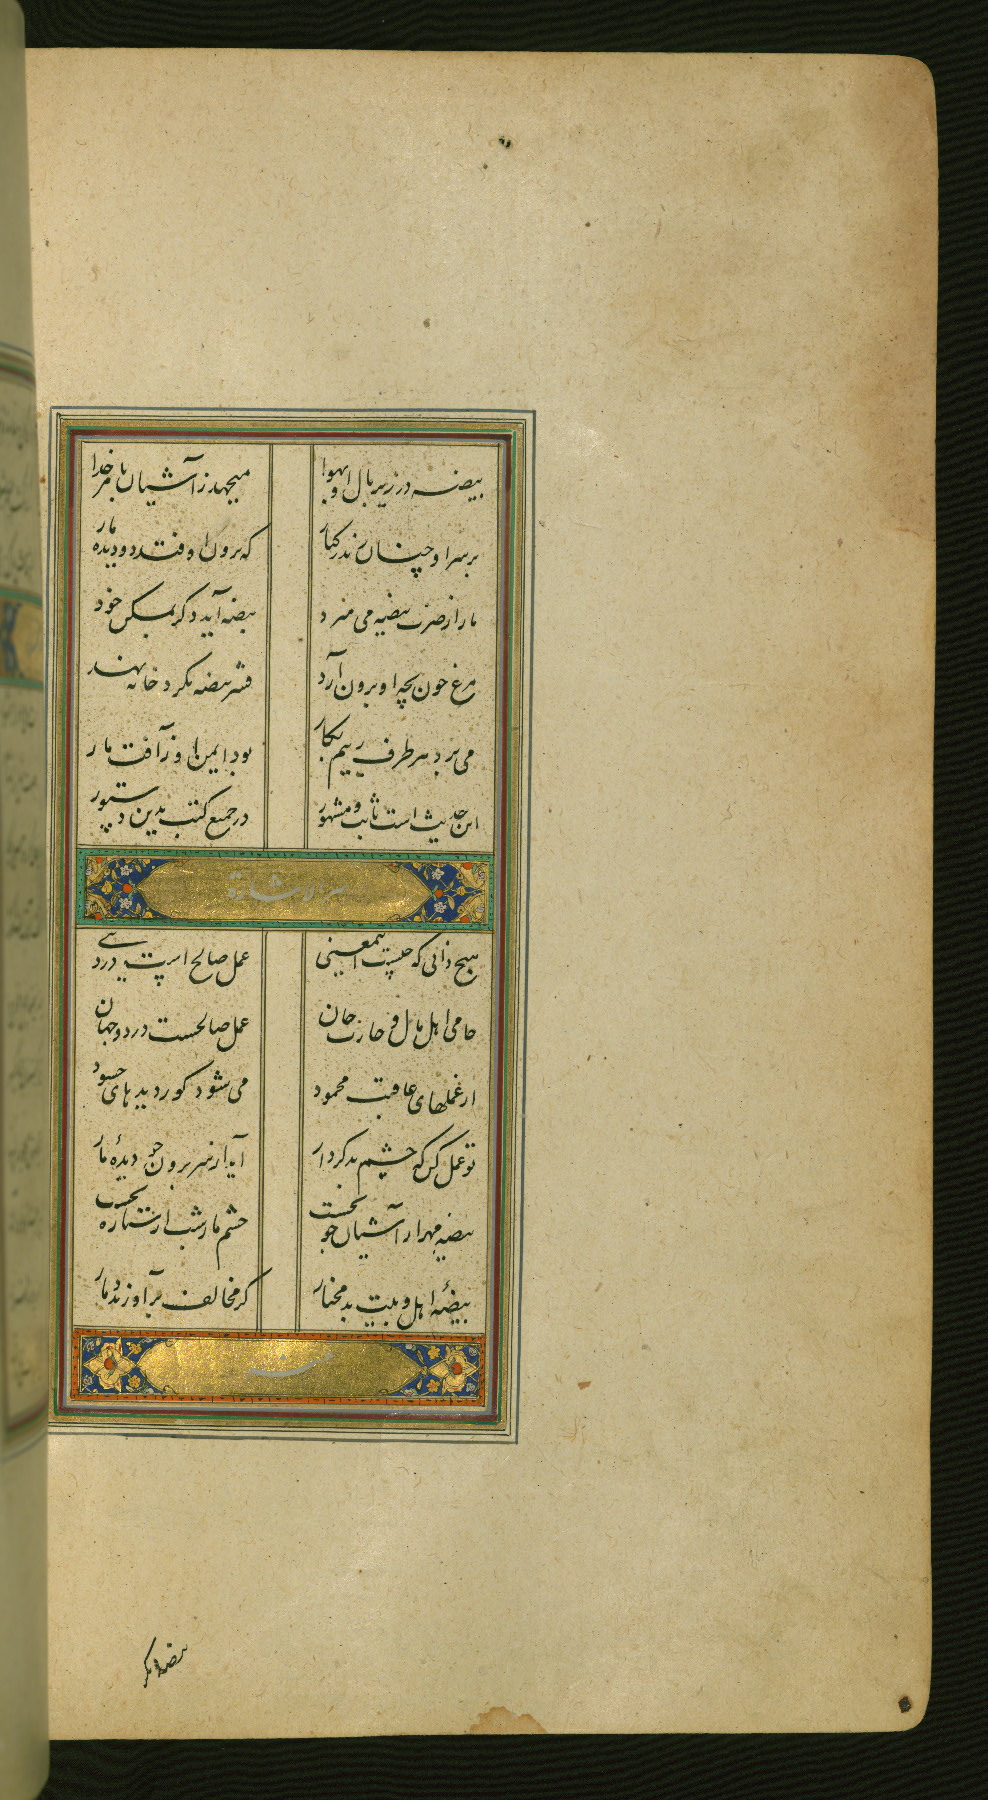 بیضه در زیر بال او بهوا میجهد ز آشیان بامر خدا
بر سر او چنان کند در کنار که برون اوفتد دو دیده مار
مار از ضرب بیضه می میرد بیضه آید دگر بمسکن خود
مرغ چون بچه را برون آرد قشر بیضه بگرد خانه نهد
می برد هر طرف ز بیم بکار بود ایمن او ز آفت مار
این حدیث است ثابت و مشهور در جمیع کتب بدین دستور
سر الاشارة
هیچ دانی که چیست این معنی عمل صالح است بی دردسی
حامی اهل مال و حارث جان عمل صالحست در دو جهان
از عملهای عاقبت محمود می شود کور دید های حسود
تو عمل کن که چشم بدکردار آید از سر برون چو دیدهٔ مار
بیضه مهر از آشیان چو بجست چشم مار شب از ستاره بخست
بیضهٔ اهل و بیت بد مختار کز مخالف برآورند دمار
منه
بیضه دیگر